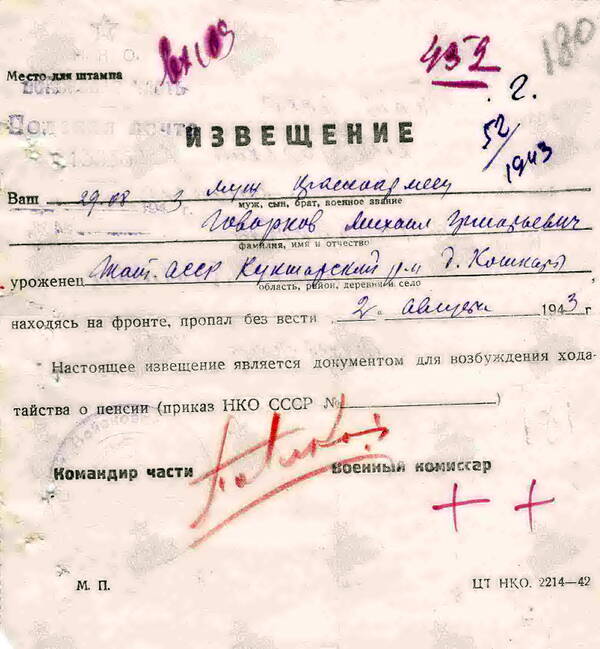 вх 103
452
180
Место для штампа
Полевая почта
г.
ИЗВЕЩЕНИЕ
52/1943
Ваш муж красноармеец
муж, сын, брат, военное звание
Говорков Михаил Григорьевич
фамилия, имя и отчество
уроженец АССР р-н д.
область, район, деревня и село
находясь на фронте, пропал без вести 2 августа 1943 г
Настоящее извещение является документом для возбуждения хода-
тайства о пенсии (приказ НКО СССР № )
Командир части Военный комиссар
М. П. ЦТ НКО. 2214—42